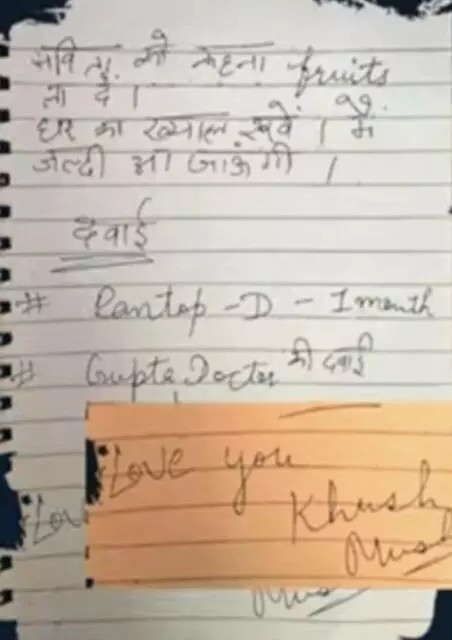 भविता को कहना fruits
ला दे ।
घर का ख्याल रखें । मैं
जल्दी आ जाऊंगी ।
दवाई
# Pantop - D - 1 month
# Gupta Doctor की दवाई
Love you
Khush